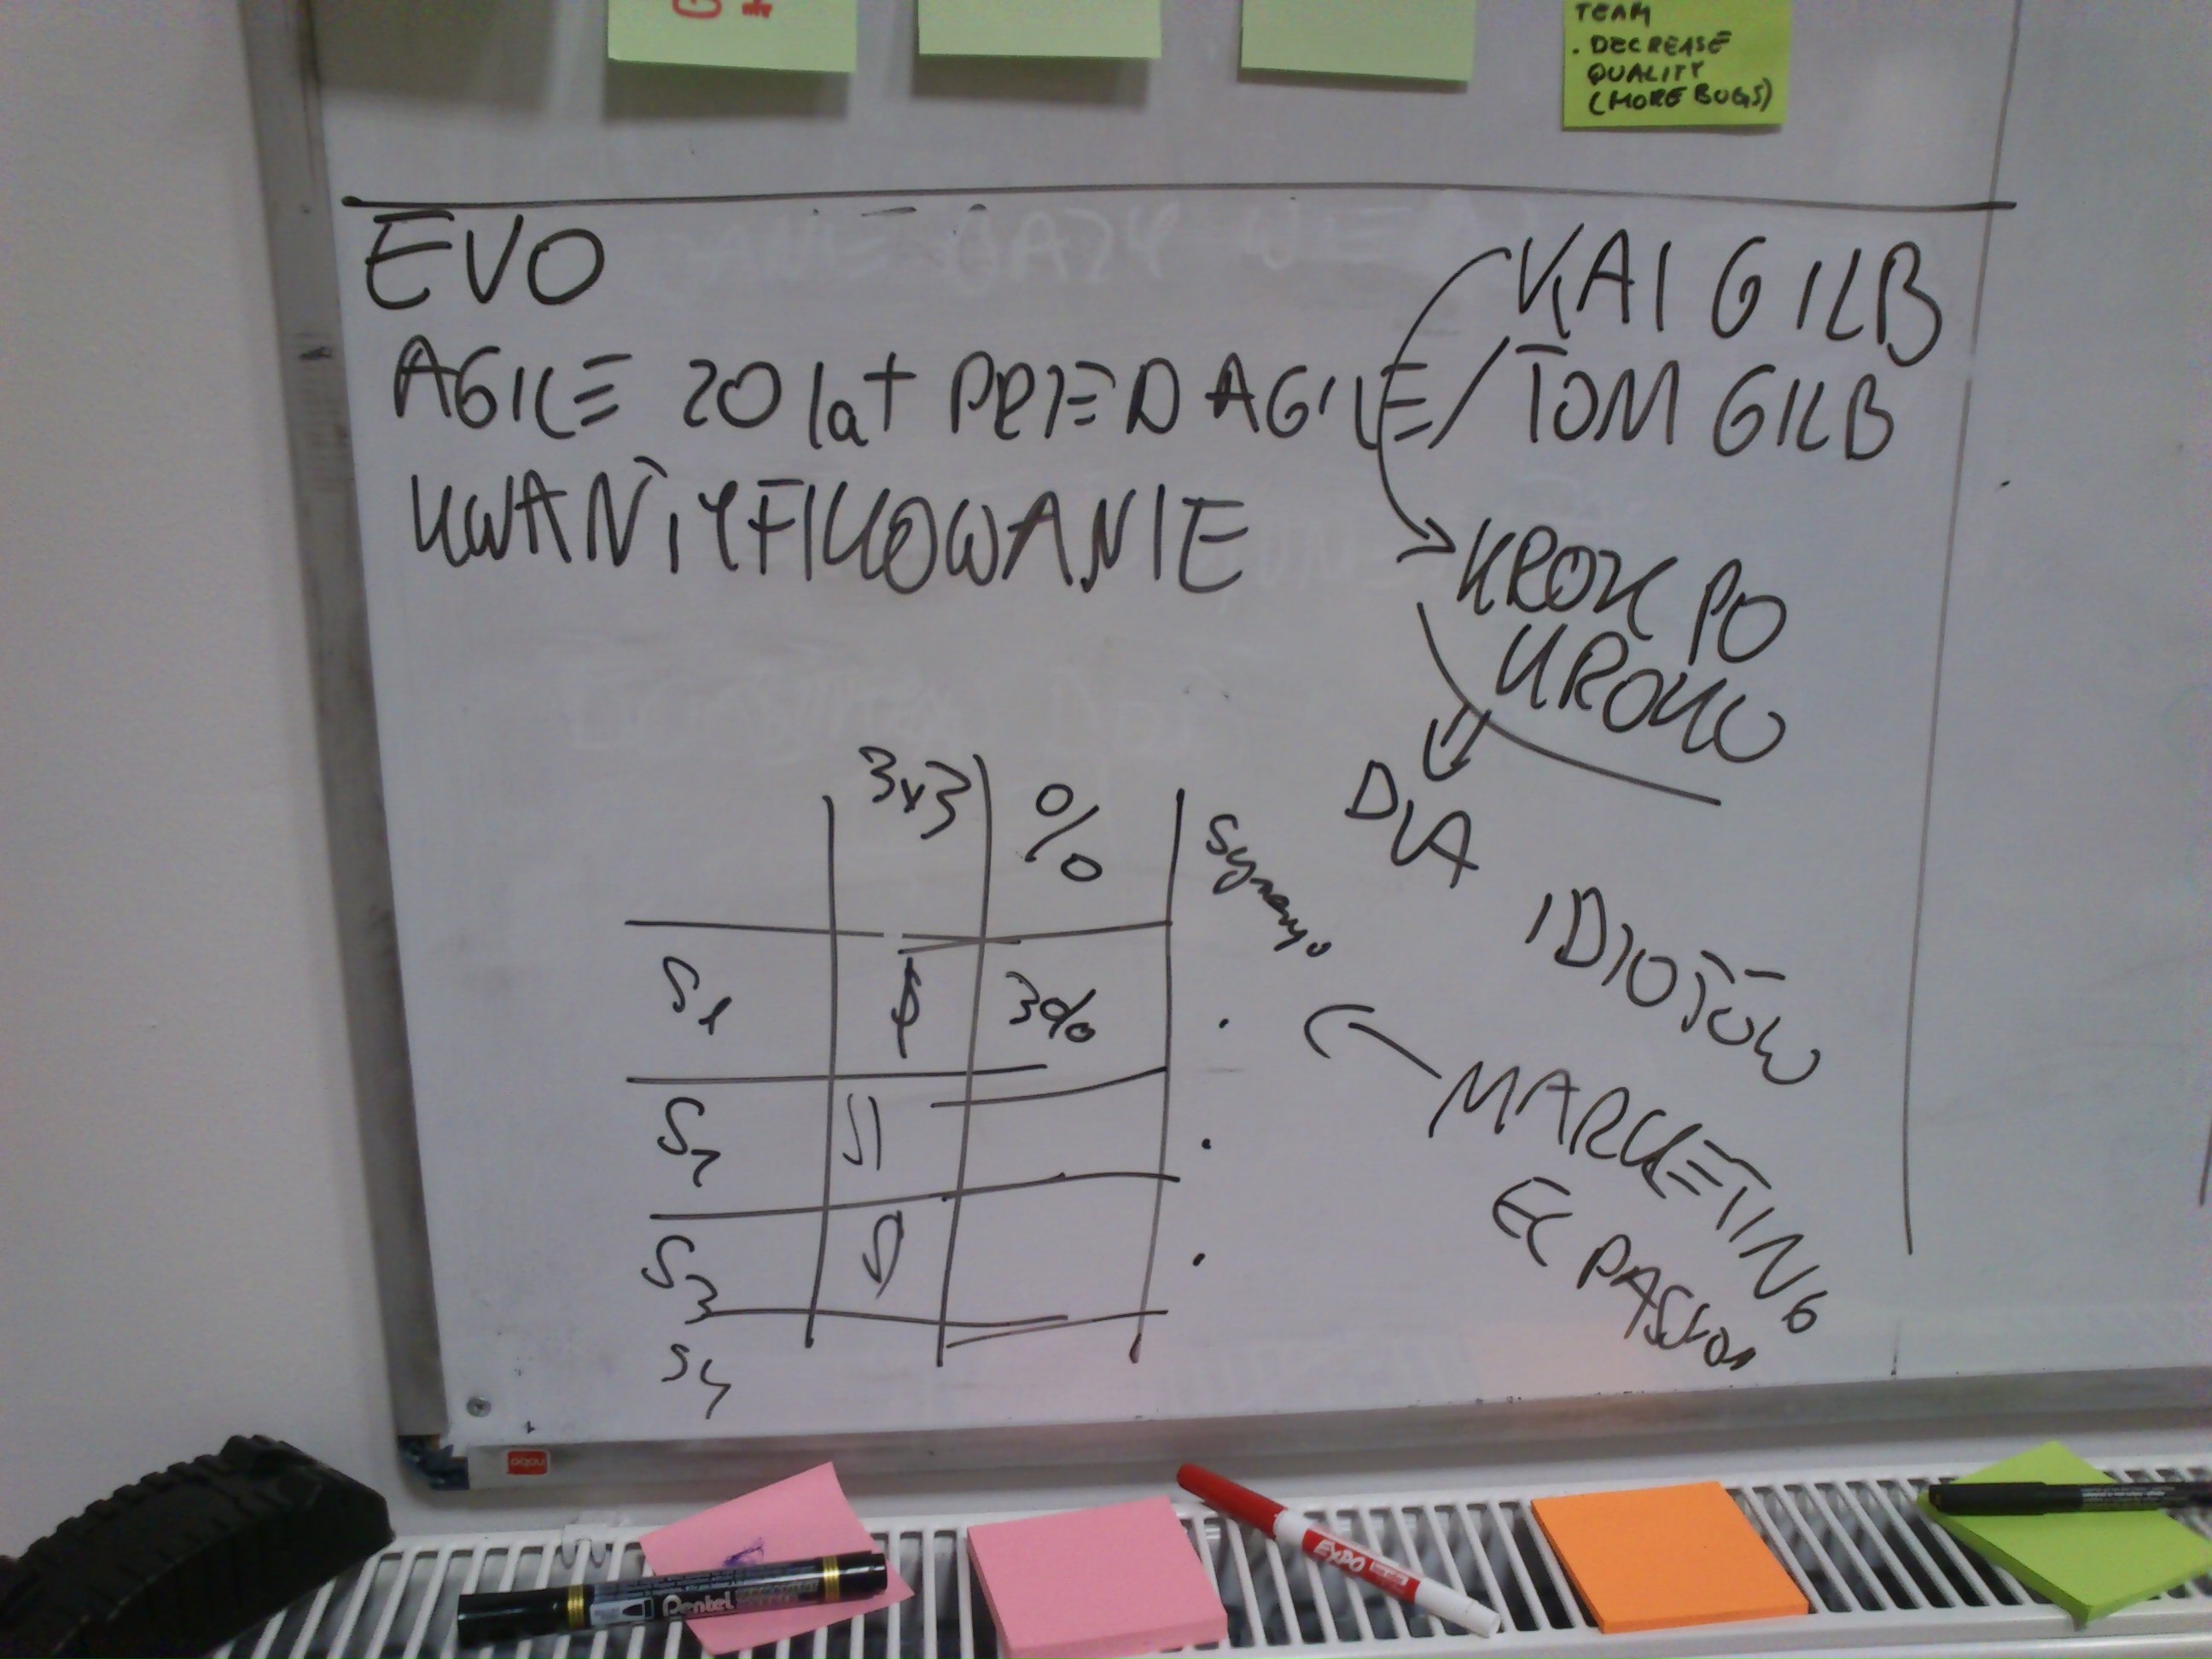 TEAM
. DECREASE
QUALITY
(MORE BUGS)
EVO
KAI GILB
AGILE 20 lat PRZED AGILE / TOM GILB
KWANTYFIKOWANIE
KROK PO
KROKU
DLA IDIOTÓW
3x3 %
S1 3%
S2
S3
S4
MARKETING
nobo
Pentel
EXPO